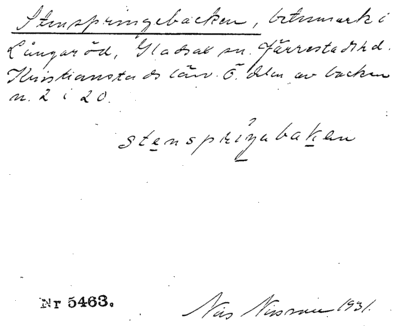 Stenspringebacken, betesmark i
Långaröd, Gladsax sn. Järrestads hd.
Kristianstads län. Ö. delen av backen
n. 2 i 20.
stenspriŋabaken
Nr 5463.
Nils Nilsson 1931.